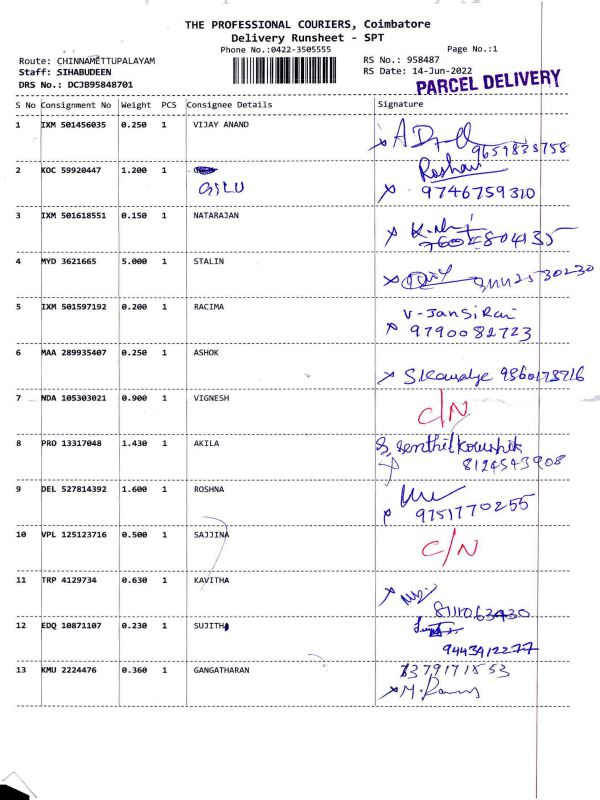 THE PROFESSIONAL COURIERS, Coimbatore
Delivery Runsheet - SPT
Phone No.:0422-3505555
Page No.:1
Route: CHINNAMETTUPALAYAM
RS No.: 958487
Staff: SIHABUDEEN
RS Date: 14-Jun-2022
DRS No.: DCJB95848701
PARCEL DELIVERY
S No Consignment No Weight PCS Consignee Details Signature
1 IXM 501456035 0.250 1 VIJAY ANAND
9659838758
2 KOC 59920447 1.200 1 Roshan
GILU 9746759310
3 IXM 501618551 0.150 1 NATARAJAN
4 MYD 3621665 5.000 1 STALIN
5 IXM 501597192 0.200 1 RACIMA V-Jansi Rani
9790082723
6 MAA 289935407 0.250 1 ASHOK
7 NDA 105303021 0.900 1 VIGNESH C/N
8 PRO 13317048 1.430 1 AKILA S. Senthil Koushik
8124543908
9 DEL 527814392 1.600 1 ROSHNA
9751770255
10 VPL 125123716 0.500 1 SAJJINA C/N
11 TRP 4129734 0.630 1 KAVITHA
12 EDQ 10871107 0.230 1 SUJITHA
9443912277
13 KMU 2224476 0.360 1 GANGATHARAN